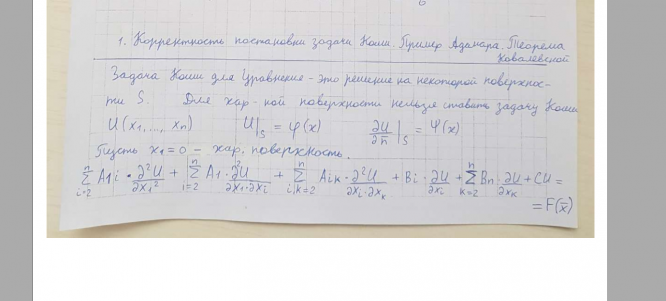 1. Корректность постановки задачи Коши. Пример Адамара. Теорема
Ковалевской
Задача Коши для Уравнение - это решение на некоторой поверхнос-
ти S. Для хар-ной поверхности нельзя ставить задачу Коши
U(x₁,..., xₙ) U|ₛ = φ(x) ∂U/∂n̄|ₛ = Ψ(x)
Пусть x₁ = 0 - хар. поверхность.
∑ⁿᵢ₌₂ A₁i · ∂²U/∂x₁² + ∑ⁿᵢ₌₂ A₁ · ∂²U/∂x₁·∂xᵢ + ∑ⁿᵢ,ₖ₌₂ Aᵢₖ · ∂²U/∂xᵢ·∂xₖ + Bᵢ · ∂U/∂xᵢ + ∑ⁿₖ₌₂ Bₙ · ∂U/∂xₖ + CU =
= F(x̄)